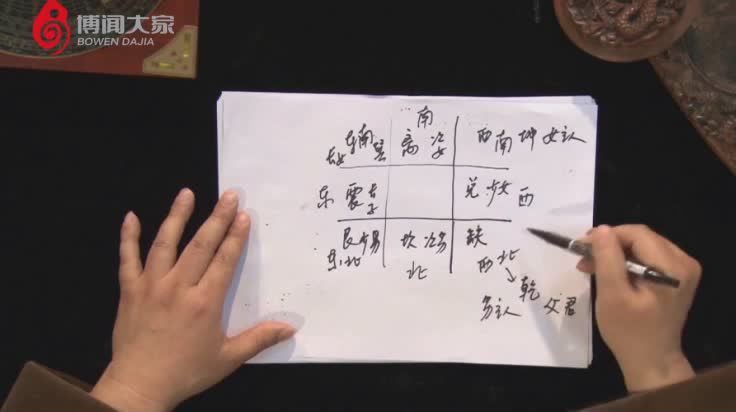 博闻大家
BOWEN DAJIA
南
东南巽 离 次女 西南坤女主人
长女
东 震 长子 兑少女 西
艮少男 坎次男 缺
东北 北 西北
乾
男主人 父君